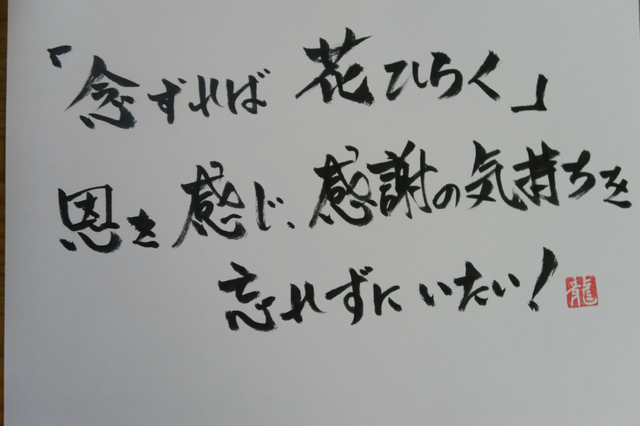 「念ずれば 花ひらく」
恩を感じ、感謝の気持ちを
忘れずにいたい!
龍